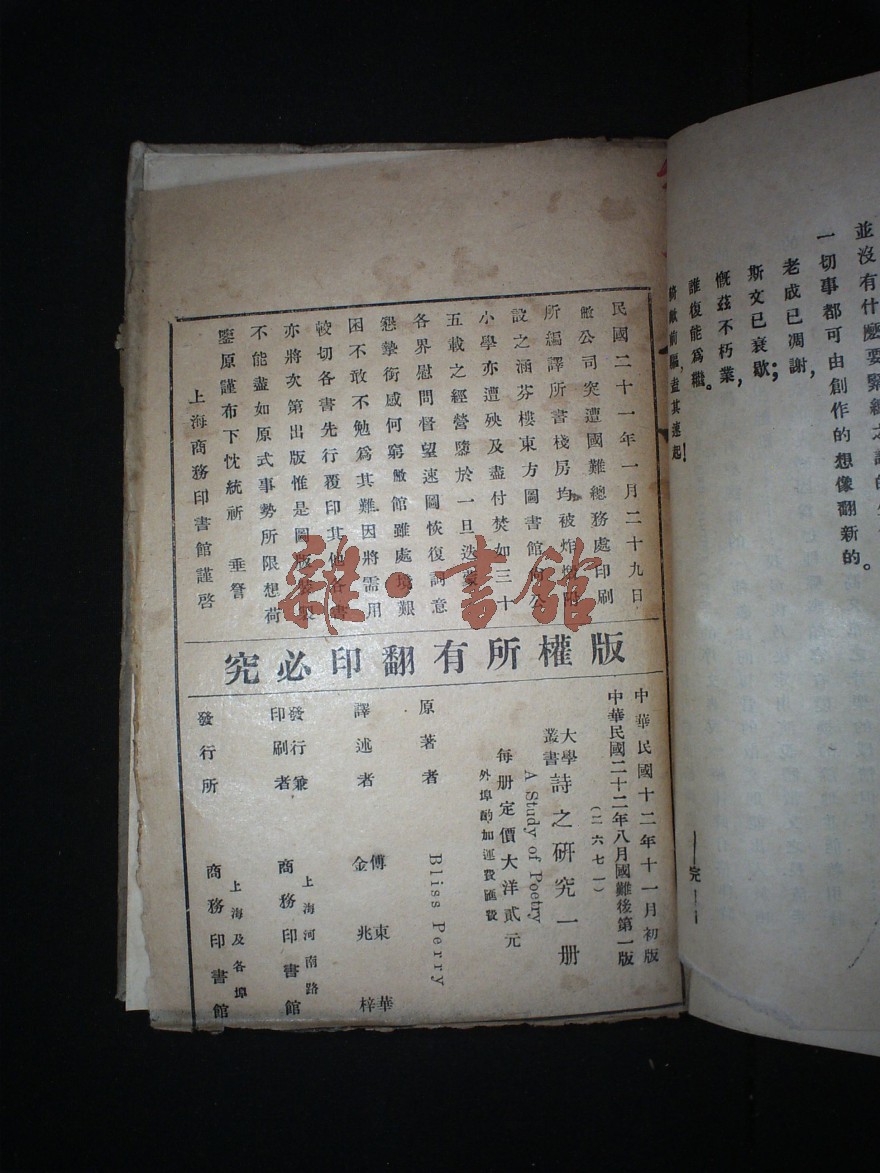 並沒有什麽要緊
一切事都可由創作的想像翻新的。
老成已凋謝，
斯文已衰歇；
慨茲不朽業，
誰復能爲繼。
前驅，盍其速起！
——完——
民國二十一年一月二十九日
敝公司突遭國難總務處印刷
所編譯所書棧房均被炸燬附
設之涵芬樓東方圖書館尙公
小學亦遭殃及盡付焚如三十
五載之經營隳於一旦迭蒙
各界慰問督望速圖恢復詞意
懇摯銜感何窮敝館雖處境艱
困不敢不勉爲其難因將需用
較切各書先行覆印其他各書
亦將次第出版惟是圖版裝製
不能盡如原式事勢所限想荷
鑒原謹布下忱統祈 垂詧
上海商務印書館謹啓
版權所有翻印必究
中華民國十二年十一月初版
中華民國二十二年八月國難後第一版
(二六七一)
大學叢書 詩之研究一册
A Study of Poetry
每册定價大洋貳元
外埠酌加運費匯費
原著者 Bliss Perry
譯述者 傅東華 金兆梓
發行兼印刷者 上海河南路 商務印書館
發行所 上海及各埠 商務印書館
雜·書館